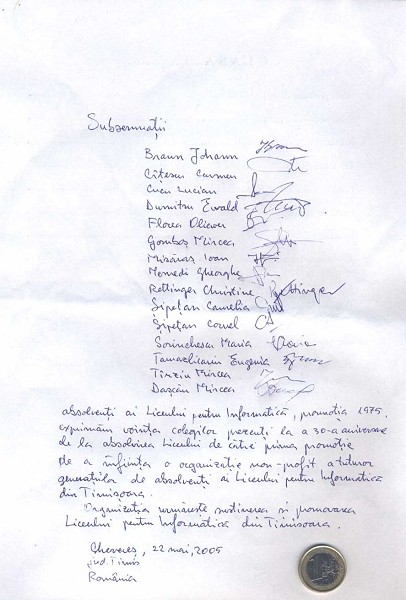 Subsemnații
Braun Johann
Cîtescu Carmen
Cucu Lucian
Dumitru Ewald
Florea Oliver
Gomboș Mircea
Ioan
Gheorghe
Rettinger Christine Rettinger
Sipețan Camelia
Sipețan Cornel
Maria
Eugenia
Mircea
Dascău Mircea
absolvenți ai Liceului pentru Informatică, promoția 1975,
exprimăm voința colegilor prezenți la a 30-a aniversare
de la absolvirea Liceului de către prima promoție
de a înființa o organizație non-profit a tuturor
generațiilor de absolvenți ai Liceului pentru Informatică
din Timișoara.
Organizația urmărește susținerea și promovarea
Liceului pentru Informatică din Timișoara.
Chevereș, 22 mai, 2005
jud. Timiș
România
1